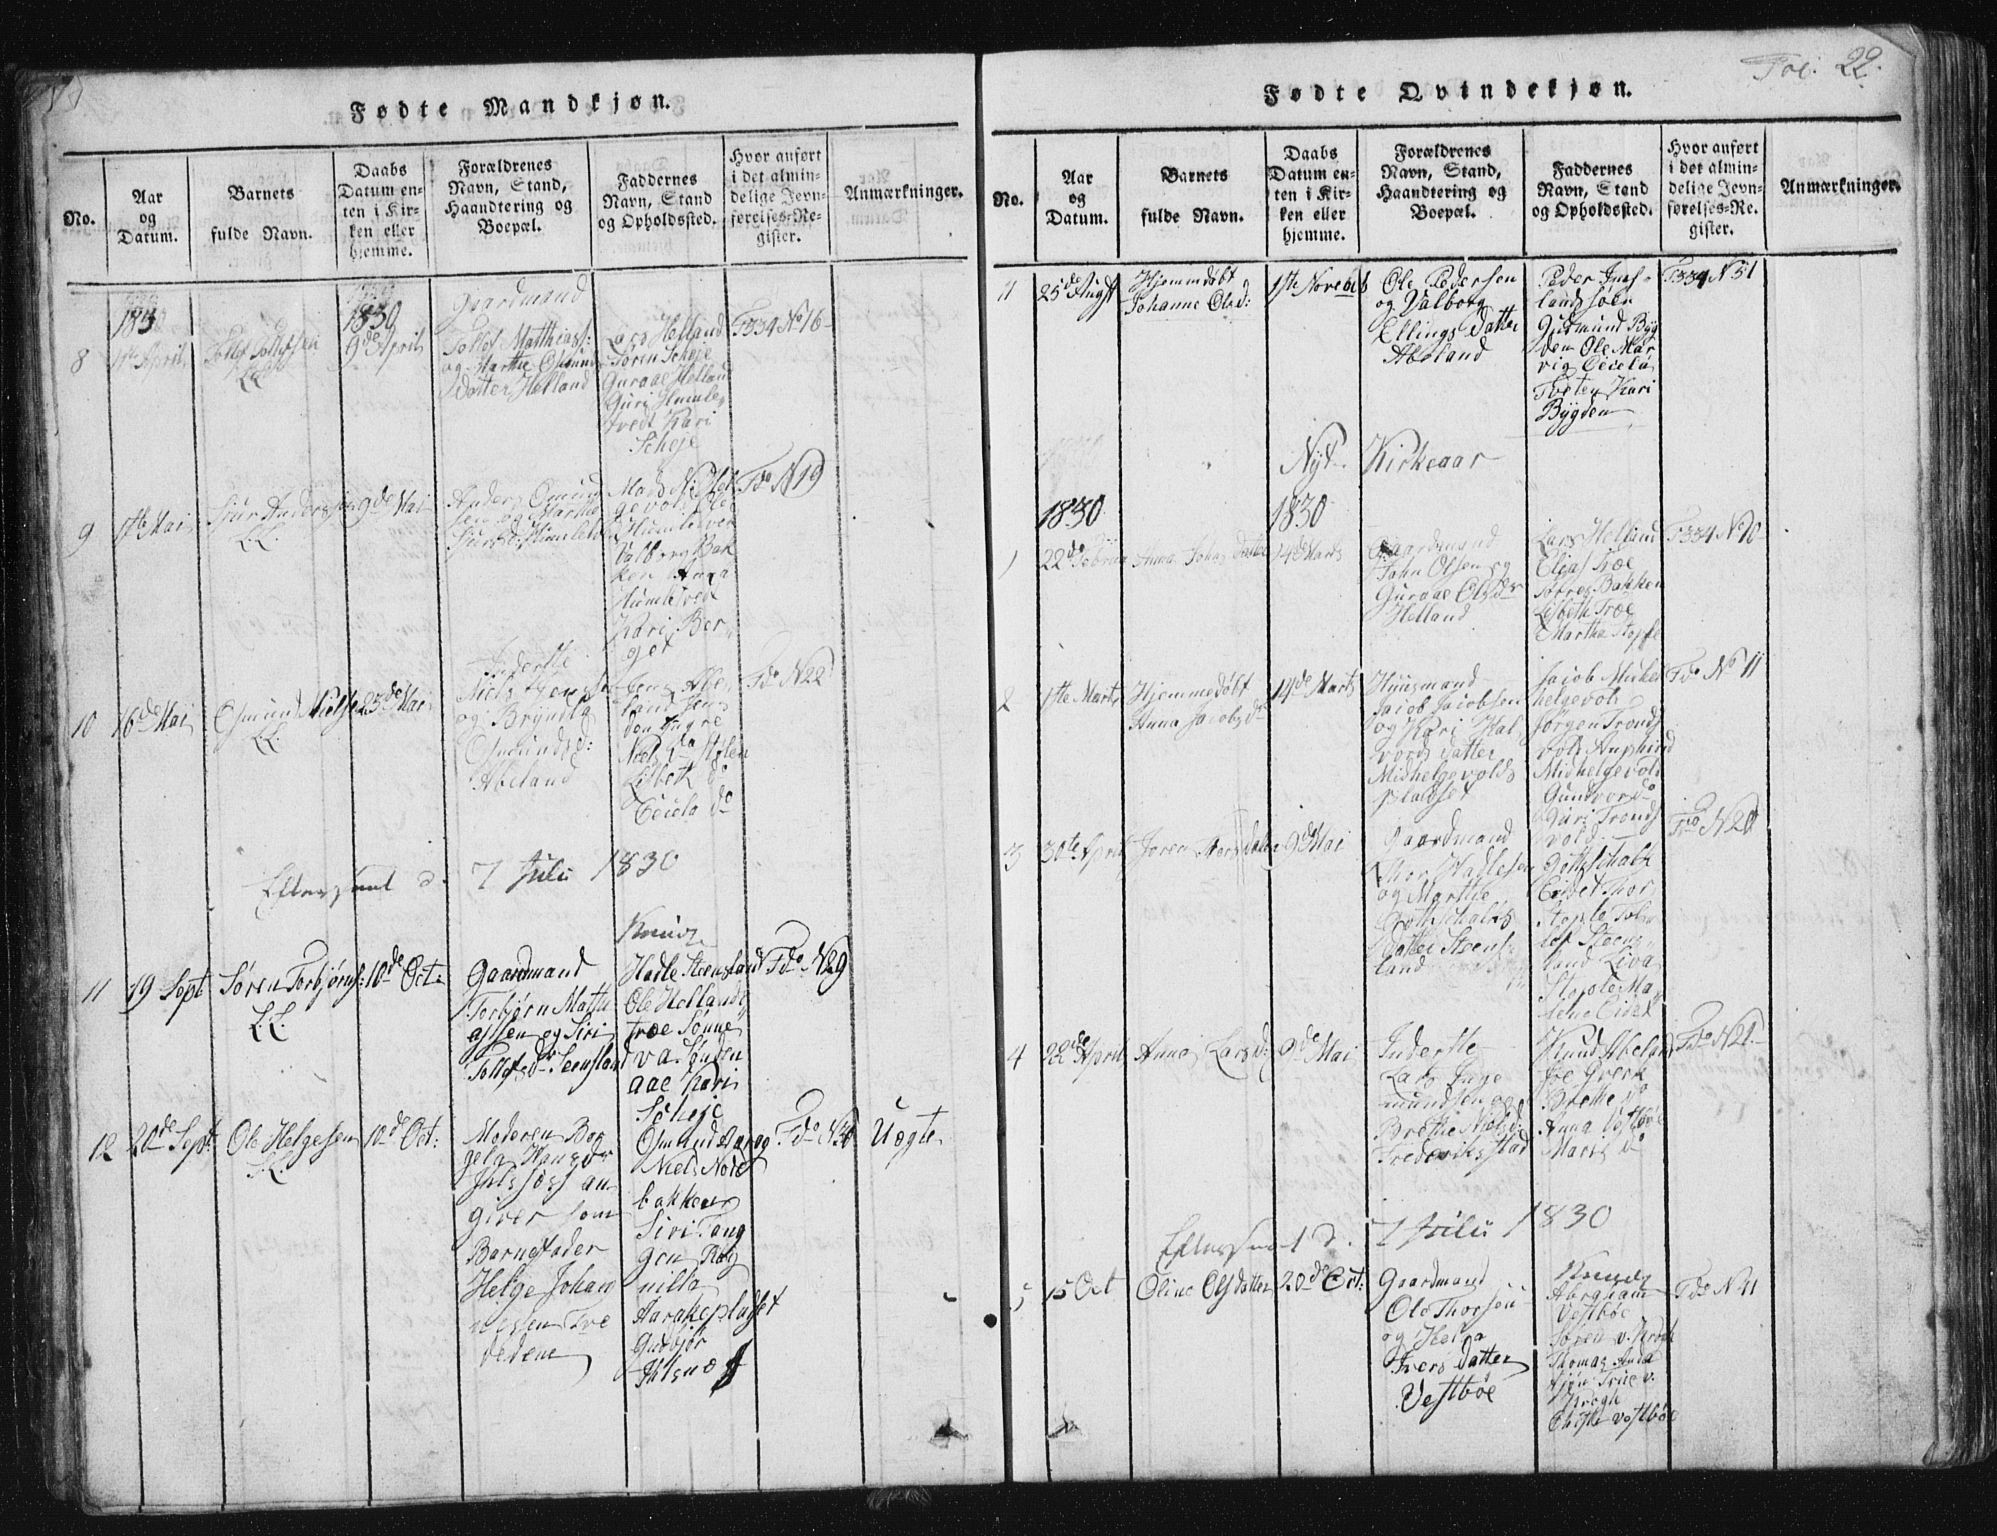 Fødte Mandkjøn.
No.
Aar
og
Datum.
Barnets
fulde Navn.
Daabs
Datum en-
ten i Kir-
ken eller
hjemme.
Forældrenes
Navn, Stand,
Haandtering og
Boepæl.
Faddernes
Navn, Stand
og Opholdssted.
Hvor anført
i det almin-
delige Jevn-
førelses-Re-
gister.
Anmærkninger.
1830
Gaardmand
8
1ste April
9de April
Tollef Matthiass:
og Marthe Osmund
datter Helland
Lars Helland
Søren Scheje
Guraae Helland
Guri Humle
tvedt Kari
Scheje
F334 No 16
9
1ste Mai
Siur Anderssen
L.L.
9de Mai
Anders Osmun
sen og Marthe
Siursd: Humletvedt
Mads Mi Hel
gevol Ole
Humletver
Valborg Bak
ken Anna
Humletved
Kari Ber
get
Fdo N 19
10
16de Mai
Osmund Nielse
L.L.
23de Mai
Inderste
Niels Jens
og Brynild
Osmundsd:
Abeland
Jens Abe
land Jens
don Ingre
Niels da Stolen
Lisbeth do
Cecela do
Fdo N 22
Efterseet d. 7 Juli 1830
11
19 Sept
Søren Torbjørns:
L.L.
10de Oct:
Gaardmand
Torbjørn Mathi
assen og Siri
Tollefsdr Steensland
Knud
Hadle Steensland
Ole Hellands
troe Sønne
va Sønden
aae Kari
Scheje
Fdo N 29
12
20de Sept:
Ole Helgesen
L.L.
10de Oct:
Moderen Bor
gela Hansdr
Ihlsnæss an
giver som
Barnefader
Helge Johan
nessen Tve
dene
Osmund Aarag
Niels Nord
bakken
Siri Tang
gen Rag
nilla
Aarakepladset
Gudbjør
Ihlsnæs
Fdo N 30
Uægte
Fol. 22.
Fødte Qvindekjøn.
No.
Aar
og
Datum.
Barnets
fulde Navn.
Daabs
Datum en-
ten i Kir-
ken eller
hjemme.
Forældrenes
Navn, Stand,
Haandtering og
Boepæl.
Faddernes
Navn, Stand
og Opholdssted.
Hvor anført
i det almin-
delige Jevn-
førelses-Re-
gister.
Anmærkninger.
11
25de Augst
Hjemmdøbt
Johanne Olsd:
1ste Novebr
Ole Pedersen
og Valborg
Ellings datter
Abeland
Peder Ims-
landssøen
Gudmund Byg
den Ole Mar
vig Cecela
Tveten Kari
Bygden
F334 N 51
Nyt Kirkeaar
1830
1830
1
22de Februar
Anna Johns datter
14de Marts
Gaardmand
John Olsen og
Guraae Olsdr
Helland
Lars Helland
Elias Troe
Tørres Bakken
Lisbeth Troe
Martha Stople
F334 No 10
2
1ste Marts
Hjemmedøbt
Anna Jacobsdr
14de Marts
Huusmand
Jacob Jacobsen
og Kari Hal
vors datter
Midhelgevolds
pladset
Jacob Midt
helgevold
Jørgen Tronds
vold
Midhelgevold
Gunvor do
Guri Tronds
vold
Fdo No 11
3
30te April
Joren Thors datter
9de Mai
Gaardmand
Thor Hadlesen
og Marthe
Gottschalks
datter Steens-
land
Gottschalk
Eidet Thor
Stople Tol
lef Steens
land Liva
Stople Ma
lene Eidet
Fdo N 20
4
22de April
Anna Larsd:
9de Mai
Inderste
Lars Inge
mundsen og
Brethe Nielsd:
Frederiksstad
Knud Abeland
Brethe do
Anna Vestbøe
Mari do
Fdo N 21
Efterseet d. 7 Juli 1830
5
15 Oct
Oline Olsdatter
20de Oct:
Gaardmand
Ole Thorsen
og Helga
Ivers datter
Vestbøe
Knud
Abraham
Vestbøe
Søren v. Krogh
Thomas Anda
Trine v.
Krogh
Vestbøe
Fdo N 41